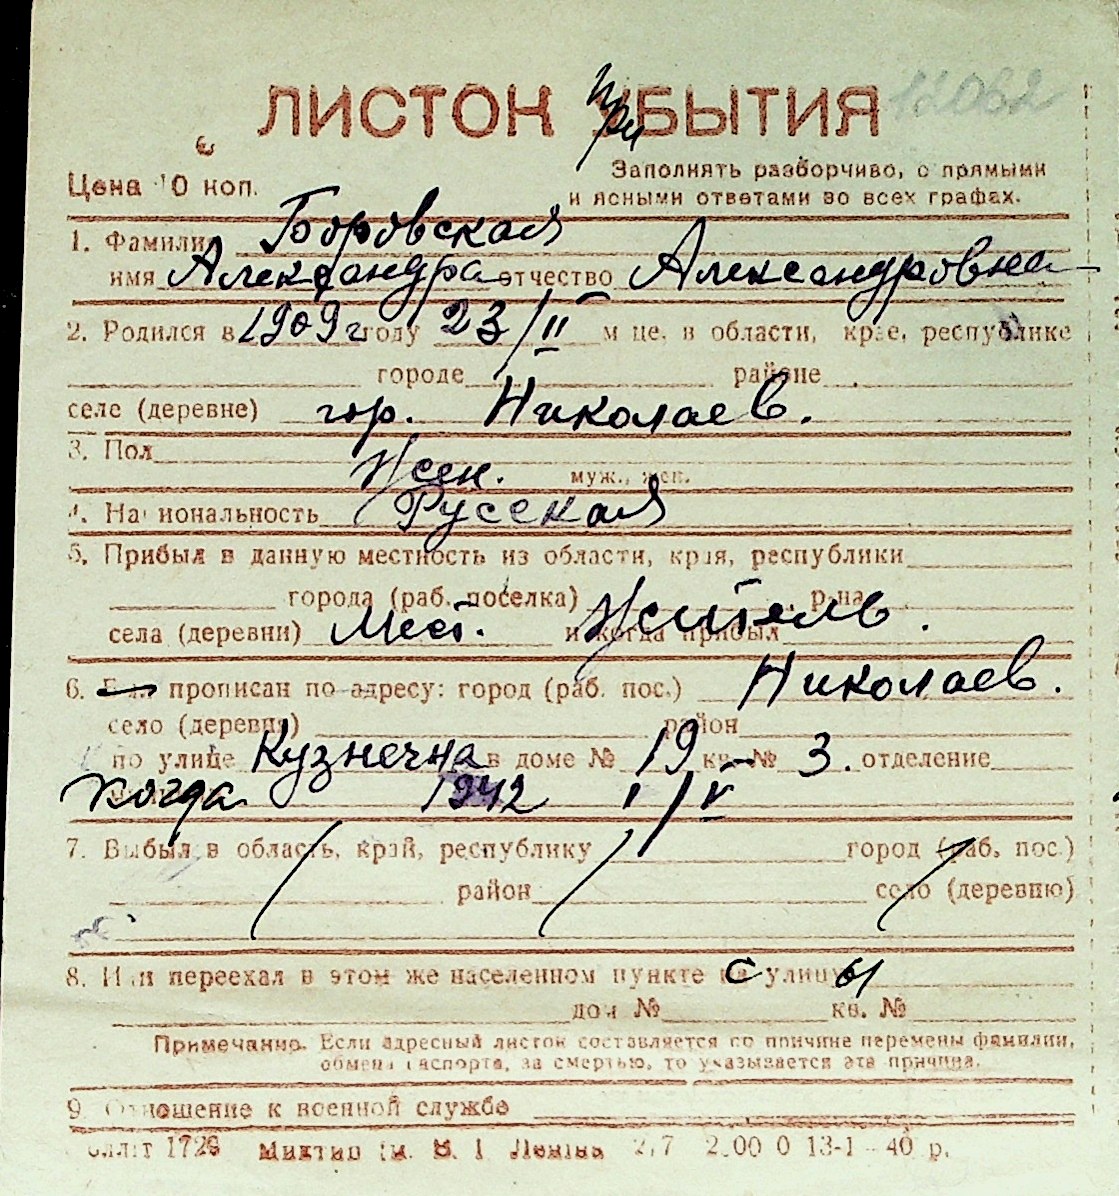 ЛИСТОК при УБЫТИЯ 12082
Цена 10 коп.
Заполнять разборчиво, с прямыми
и ясными ответами во всех графах.
1. Фамилия Боровская
имя Александра отчество Александровна
2. Родился в 1909 г году 23/II м це, в области, крае, республике
городе районе
селе (деревне) гор. Николаев.
3. Пол Жен. муж., жен.
4. Национальность Русская
5. Прибыл в данную местность из области, края, республики
города (раб. поселка) р-на
села (деревни) Мест. и когда прибыл Житель.
6. Был прописан по адресу: город (раб. пос.) Николаев.
село (деревня) район
по улице Кузнечна в доме № 19 кв. № 3. отделение
Когда 1942 I/V
7. Выбыл в область, край, республику город (раб. пос.)
район село (деревню)
8. Или переехал в этом же населенном пункте с улицы
дом № кв. №
Примечание. Если адресный листок составляется по причине перемены фамилии,
обмена паспорта, за смертью, то указывается эта причина.
9. Отношение к военной службе
1726 им. В. І Леніна 2.00 0 13-1-40 р.